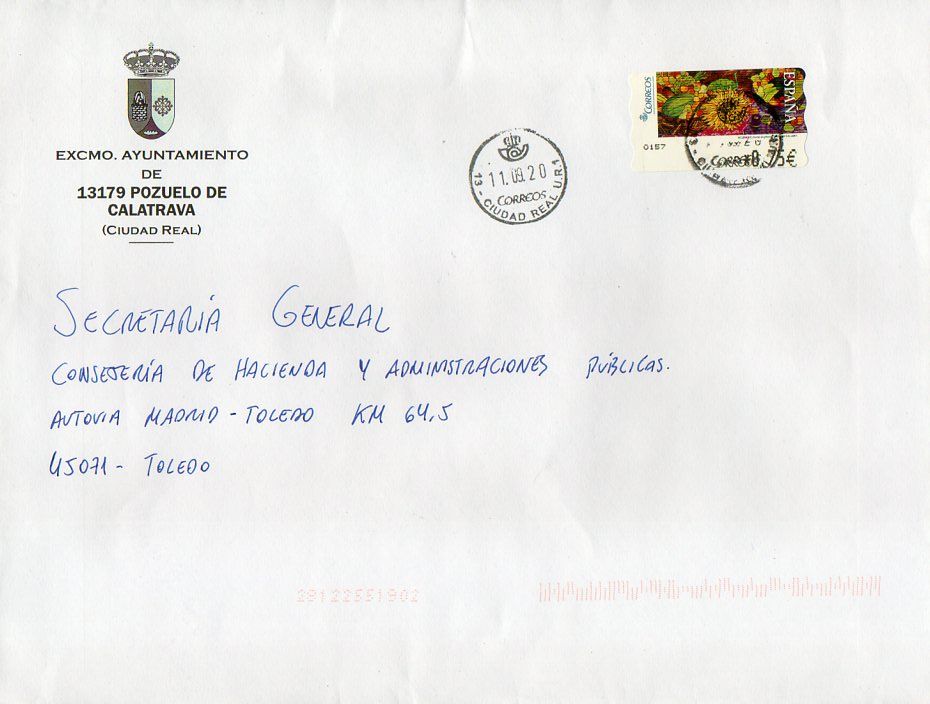 EXCMO. AYUNTAMIENTO
DE
13179 POZUELO DE
CALATRAVA
(CIUDAD REAL)
11.09.20
CORREOS
13 - CIUDAD REAL U.R1
CORREOS
ESPAÑA
0157
CORREOS
SECRETARÍA GENERAL
CONSEJERÍA DE HACIENDA Y ADMINISTRACIONES PÚBLICAS.
AUTOVIA MADRID - TOLEDO KM 64,5
45071 - TOLEDO